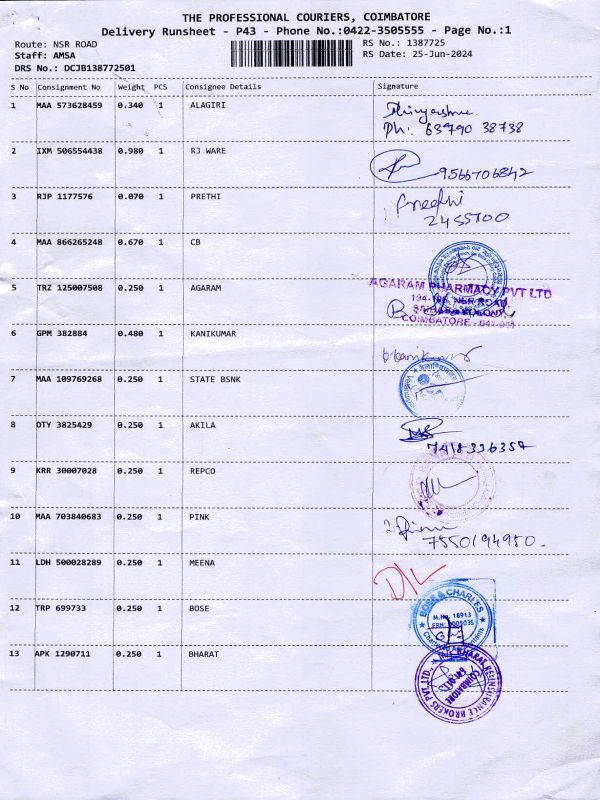 THE PROFESSIONAL COURIERS, COIMBATORE
Delivery Runsheet - P43 - Phone No.:0422-3505555 - Page No.:1
Route: NSR ROAD
Staff: AMSA
DRS No.: DCJB138772501
RS No.: 1387725
RS Date: 25-Jun-2024
S No Consignment No Weight PCS Consignee Details Signature
1 MAA 573628459 0.340 1 ALAGIRI
Ph: 63790 38738
2 IXM 506554438 0.980 1 RJ WARE 9566706842
3 RJP 1177576 0.070 1 PRETHI Preethi
2455100
4 MAA 866265248 0.670 1 CB
5 TRZ 125007508 0.250 1 AGARAM AGARAM PHARMACY PVT LTD
NSR ROAD
COIMBATORE
6 GPM 382884 0.480 1 KANIKUMAR
7 MAA 109769268 0.250 1 STATE BSNK
8 OTY 3825429 0.250 1 AKILA 7418336357
9 KRR 30007028 0.250 1 REPCO
10 MAA 703840683 0.250 1 PINK
7550194950.
11 LDH 500028289 0.250 1 MEENA D/L
12 TRP 699733 0.250 1 BOSE BOSE & CHARLES
M.No. 18913
13 APK 1290711 0.250 1 BHARAT BHARAT REINSURANCE BROKERS PVT. LTD.
COIMBATORE